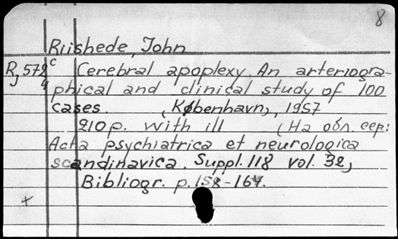 8
Riishede, John
R,578 c Cerebral apoplexy. An arteriogra-
4 phical and clinical study of 100
cases (København), 1957
210 p. with ill (На обл. сер:
Acta psychiatrica et neurologica
scandinavica. Suppl. 118 vol. 32,
Bibliogr. p. 158-167.
+